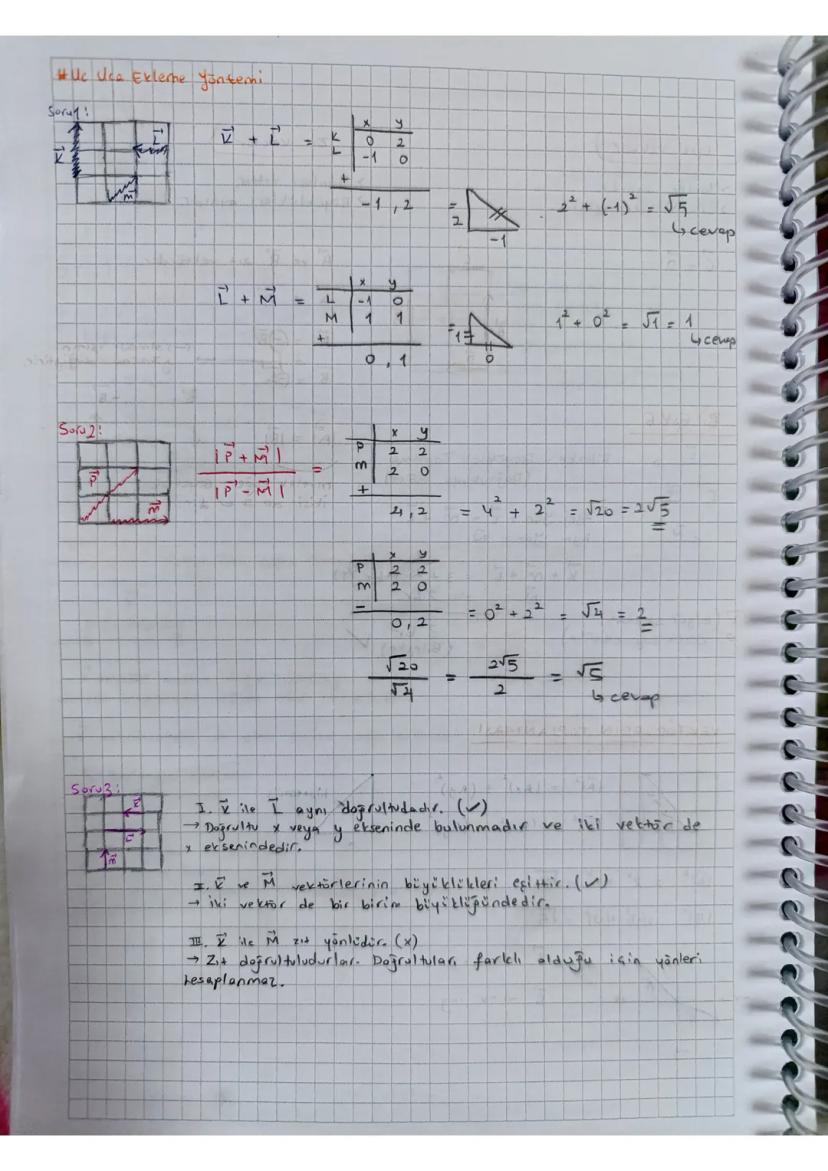 # Uc Uca Ekleme Yöntemi
Soru1:
K⃗ L⃗ M⃗
K⃗ + L⃗ =
x y
K 0 2
L -1 0
+
-1, 2
= 2 -1
2² + (-1)² = √5
↳ cevap
L⃗ + M⃗ =
x y
L -1 0
M 1 1
+
0, 1
= 1 0
1² + 0² = √1 = 1
↳ cevap
Soru2:
P⃗ M⃗
|P⃗ + M⃗| / |P⃗ - M⃗| =
x y
P 2 2
M 2 0
+
4, 2 = 4² + 2² = √20 = 2√5
x y
P 2 2
M 2 0
-
0, 2 = 0² + 2² = √4 = 2
√20 / √4 = 2√5 / 2 = √5
↳ cevap
Soru3:
K⃗ L⃗ M⃗
I. K⃗ ile L⃗ aynı doğrultudadır. (✓)
→ Doğrultu x veya y ekseninde bulunmadır ve iki vektör de
x eksenindedir.
I. K⃗ ve M⃗ vektörlerinin büyüklükleri eşittir. (✓)
→ iki vektör de bir birim büyüklüğündedir.
III. K⃗ ile M⃗ zıt yönlüdür. (x)
→ Zıt doğrultuludurlar. Doğrultuları farklı olduğu için yönleri
hesaplanmaz.